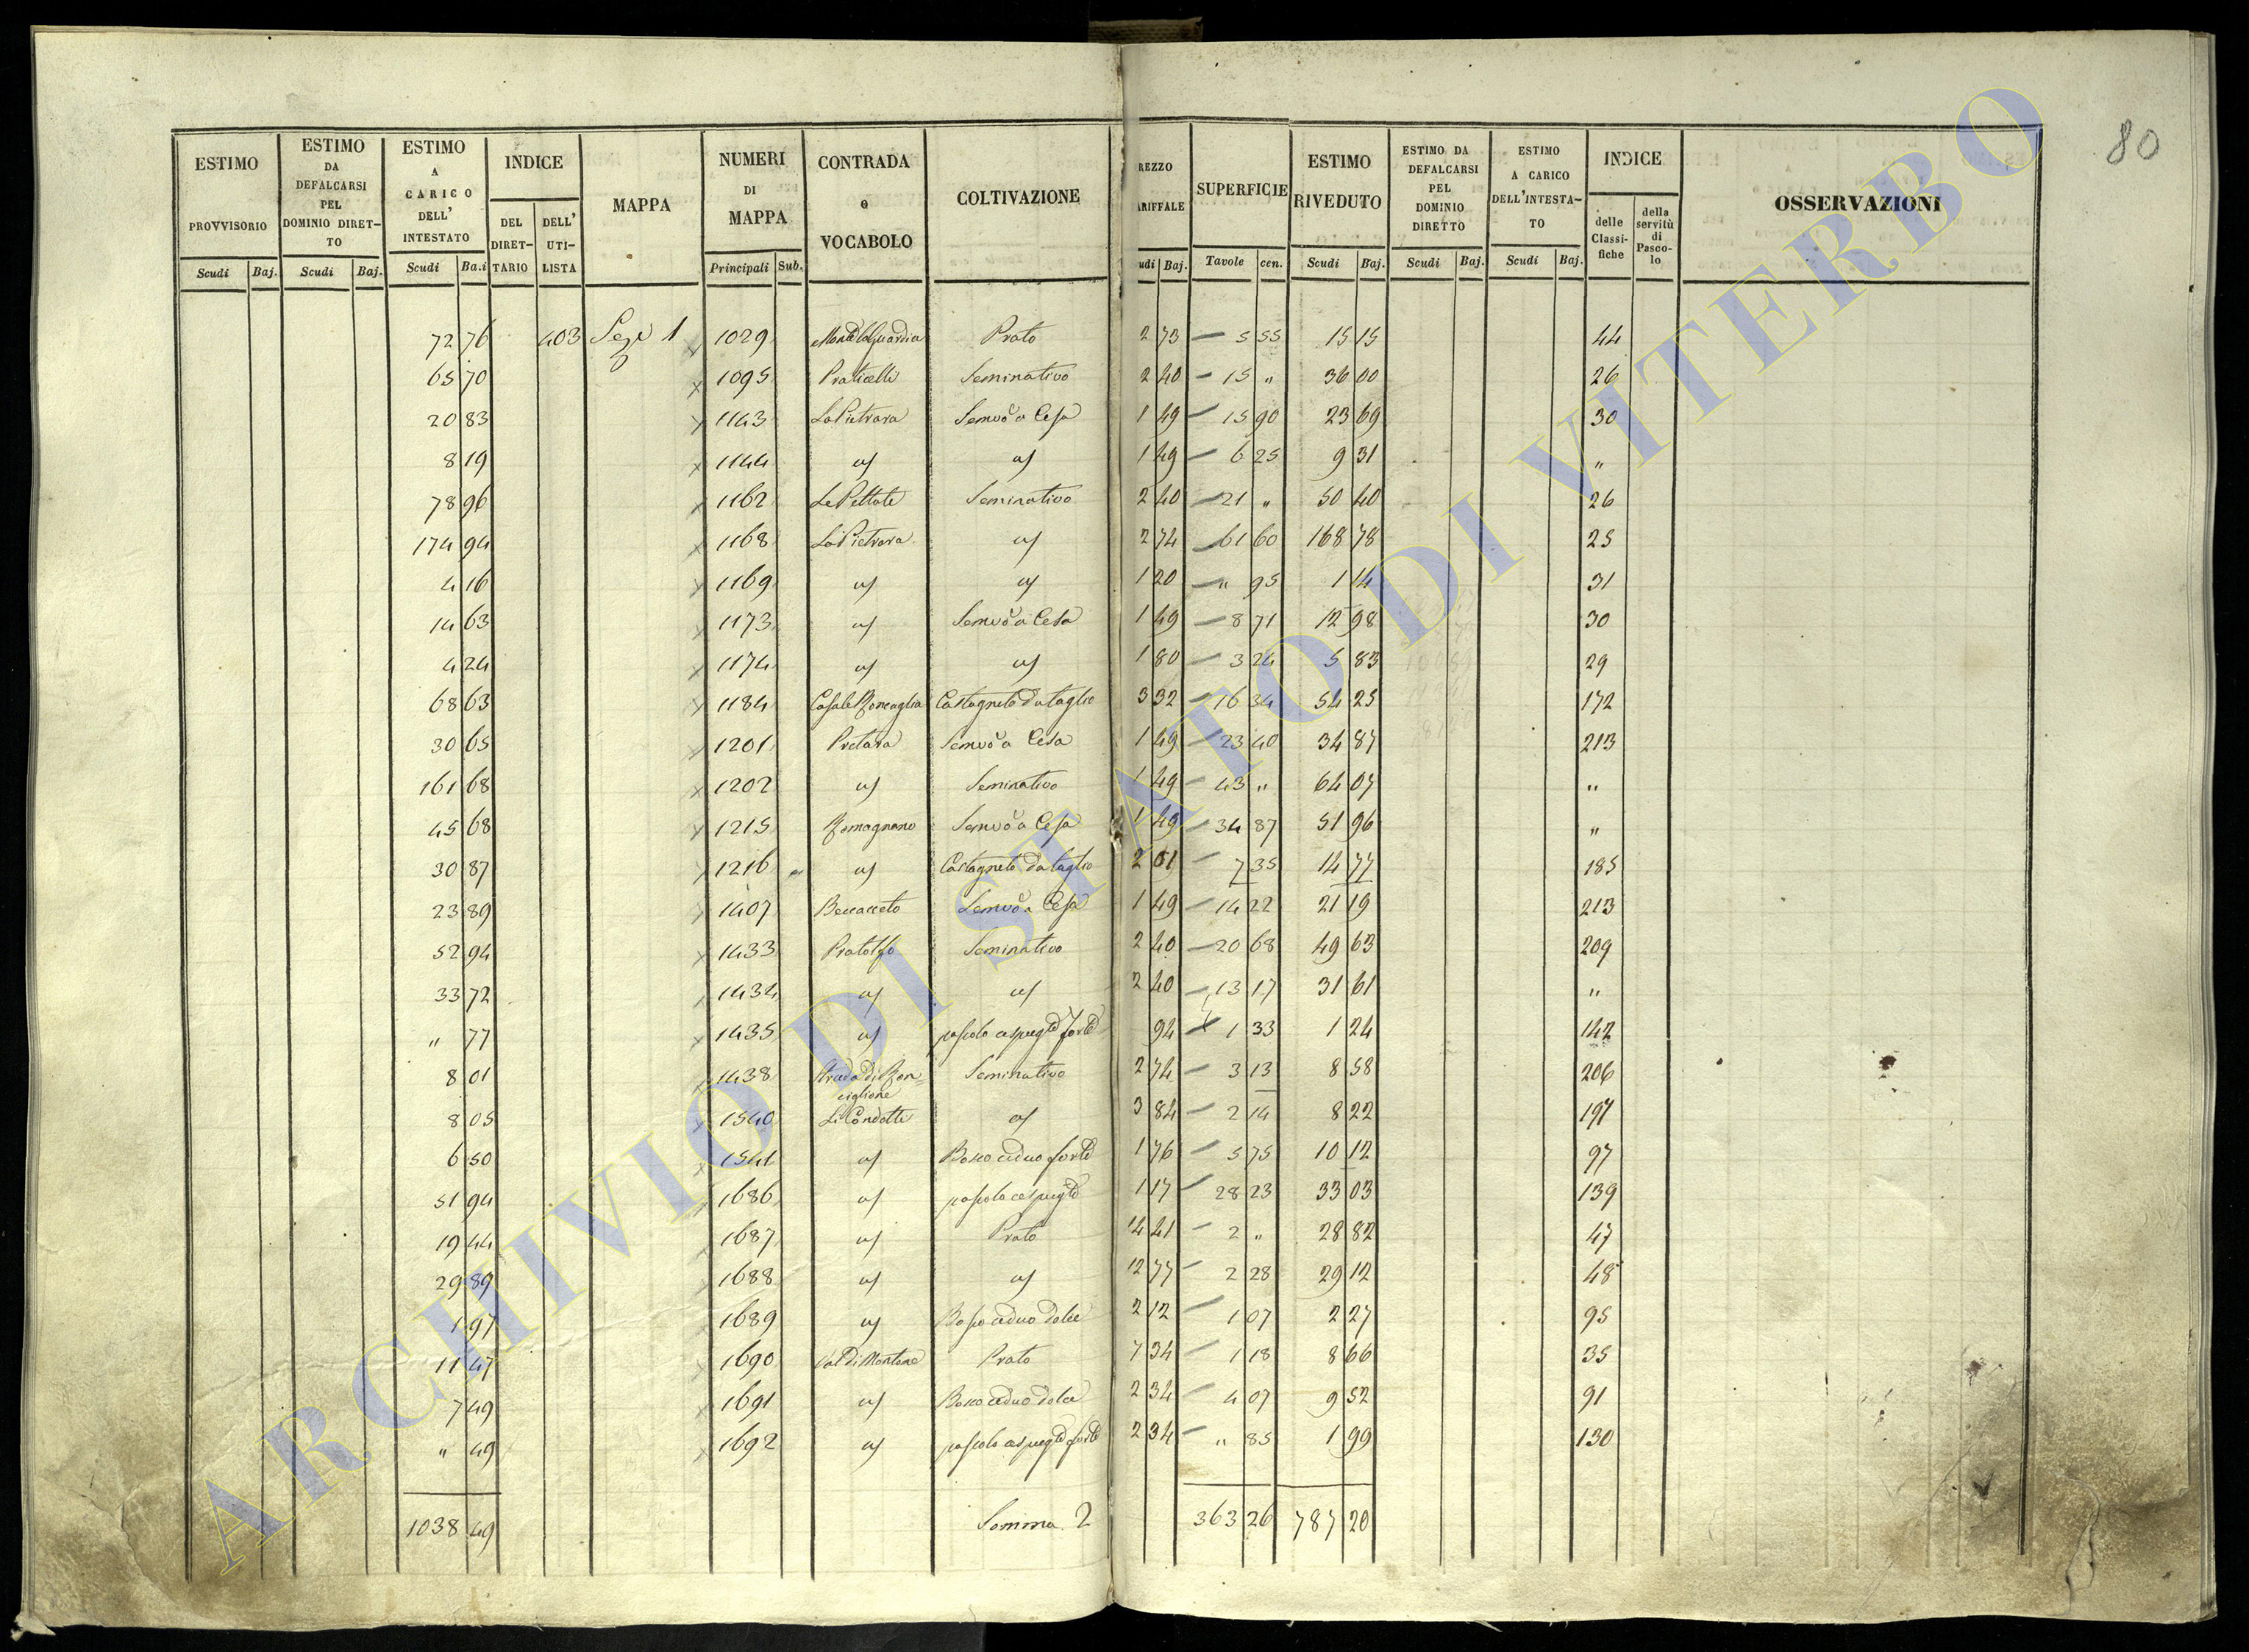 80
ESTIMO PROVVISORIO Scudi Baj.
ESTIMO DA DEFALCARSI PEL DOMINIO DIRET- TO Scudi Baj.
ESTIMO A CARICO DELL' INTESTATO Scudi Ba.i
INDICE DEL DIRET- TARIO DELL' UTI- LISTA
MAPPA
NUMERI DI MAPPA Principali Sub.
CONTRADA e VOCABOLO
COLTIVAZIONE
REZZO ARIFFALE udi Baj.
SUPERFICIE Tavole cen.
ESTIMO RIVEDUTO Scudi Baj.
ESTIMO DA DEFALCARSI PEL DOMINIO DIRETTO Scudi Baj.
ESTIMO A CARICO DELL'INTESTA- TO Scudi Baj.
INDICE delle Classi- fiche della servitù di Pasco- lo
OSSERVAZIONI
72 76 403 Seze 1 1029 Monte la Guardia Prato 2 73 5 55 15 15 44
65 70 1095 Praticelli Seminativo 2 40 15 " 36 00 26
20 83 1143 La Pietrara Semvo a Cesa 1 49 15 90 23 69 30
8 19 1144 a/ a/ 1 49 6 25 9 31 "
78 96 1162 Le Pettate Seminativo 2 40 21 " 50 40 26
174 94 1168 La Pietrara a/ 2 74 61 60 168 78 25
4 16 1169 a/ a/ 1 20 " 95 1 14 31
14 63 1173 a/ Semvo a Cesa 1 49 8 71 12 98 30
4 24 1174 a/ a/ 1 80 3 24 5 83 29
68 63 1184 Casale Roncaglia Castagneto da taglio 3 32 16 34 54 25 172
30 65 1201 Pretara Semvo a Cesa 1 49 23 40 34 87 213
161 68 1202 a/ Seminativo 1 49 43 " 64 07 "
45 68 1215 Romagnano Semvo a Cesa 1 49 34 87 51 96 "
30 87 1216 " a/ Castagneto da taglio 2 01 7 35 14 77 185
23 89 1407 Beccacceto Semvo a Cesa 1 49 14 22 21 19 213
52 94 1433 Pratolfo Seminativo 2 40 20 68 49 63 209
33 72 1434 a/ a/ 2 40 13 17 31 61 "
" 77 1435 a/ pascolo cespugto forte 94 1 33 1 24 142
8 01 1438 Strada di Ron= Seminativo 2 74 3 13 8 58 206
ciglione
8 05 1540 Li Condotti a/ 3 84 2 14 8 22 197
6 50 1541 a/ Bosco ceduo forte 1 76 5 75 10 12 97
51 94 1686 a/ pascolo cespugto 1 17 28 23 33 03 139
19 44 1687 a/ Prato 14 41 2 " 28 82 47
29 89 1688 a/ a/ 12 77 2 28 29 12 48
1 97 1689 a/ Bosco ceduo dolce 2 12 1 07 2 27 95
11 47 1690 Val di Montone Prato 7 34 1 18 8 66 35
7 49 1691 a/ Bosco ceduo dolce 2 34 4 07 9 52 91
" 49 1692 a/ pascolo cespugto forte 2 34 " 85 1 99 130
1038 49 Somma 2 363 26 787 20
ARCHIVIO DI STATO DI VITERBO